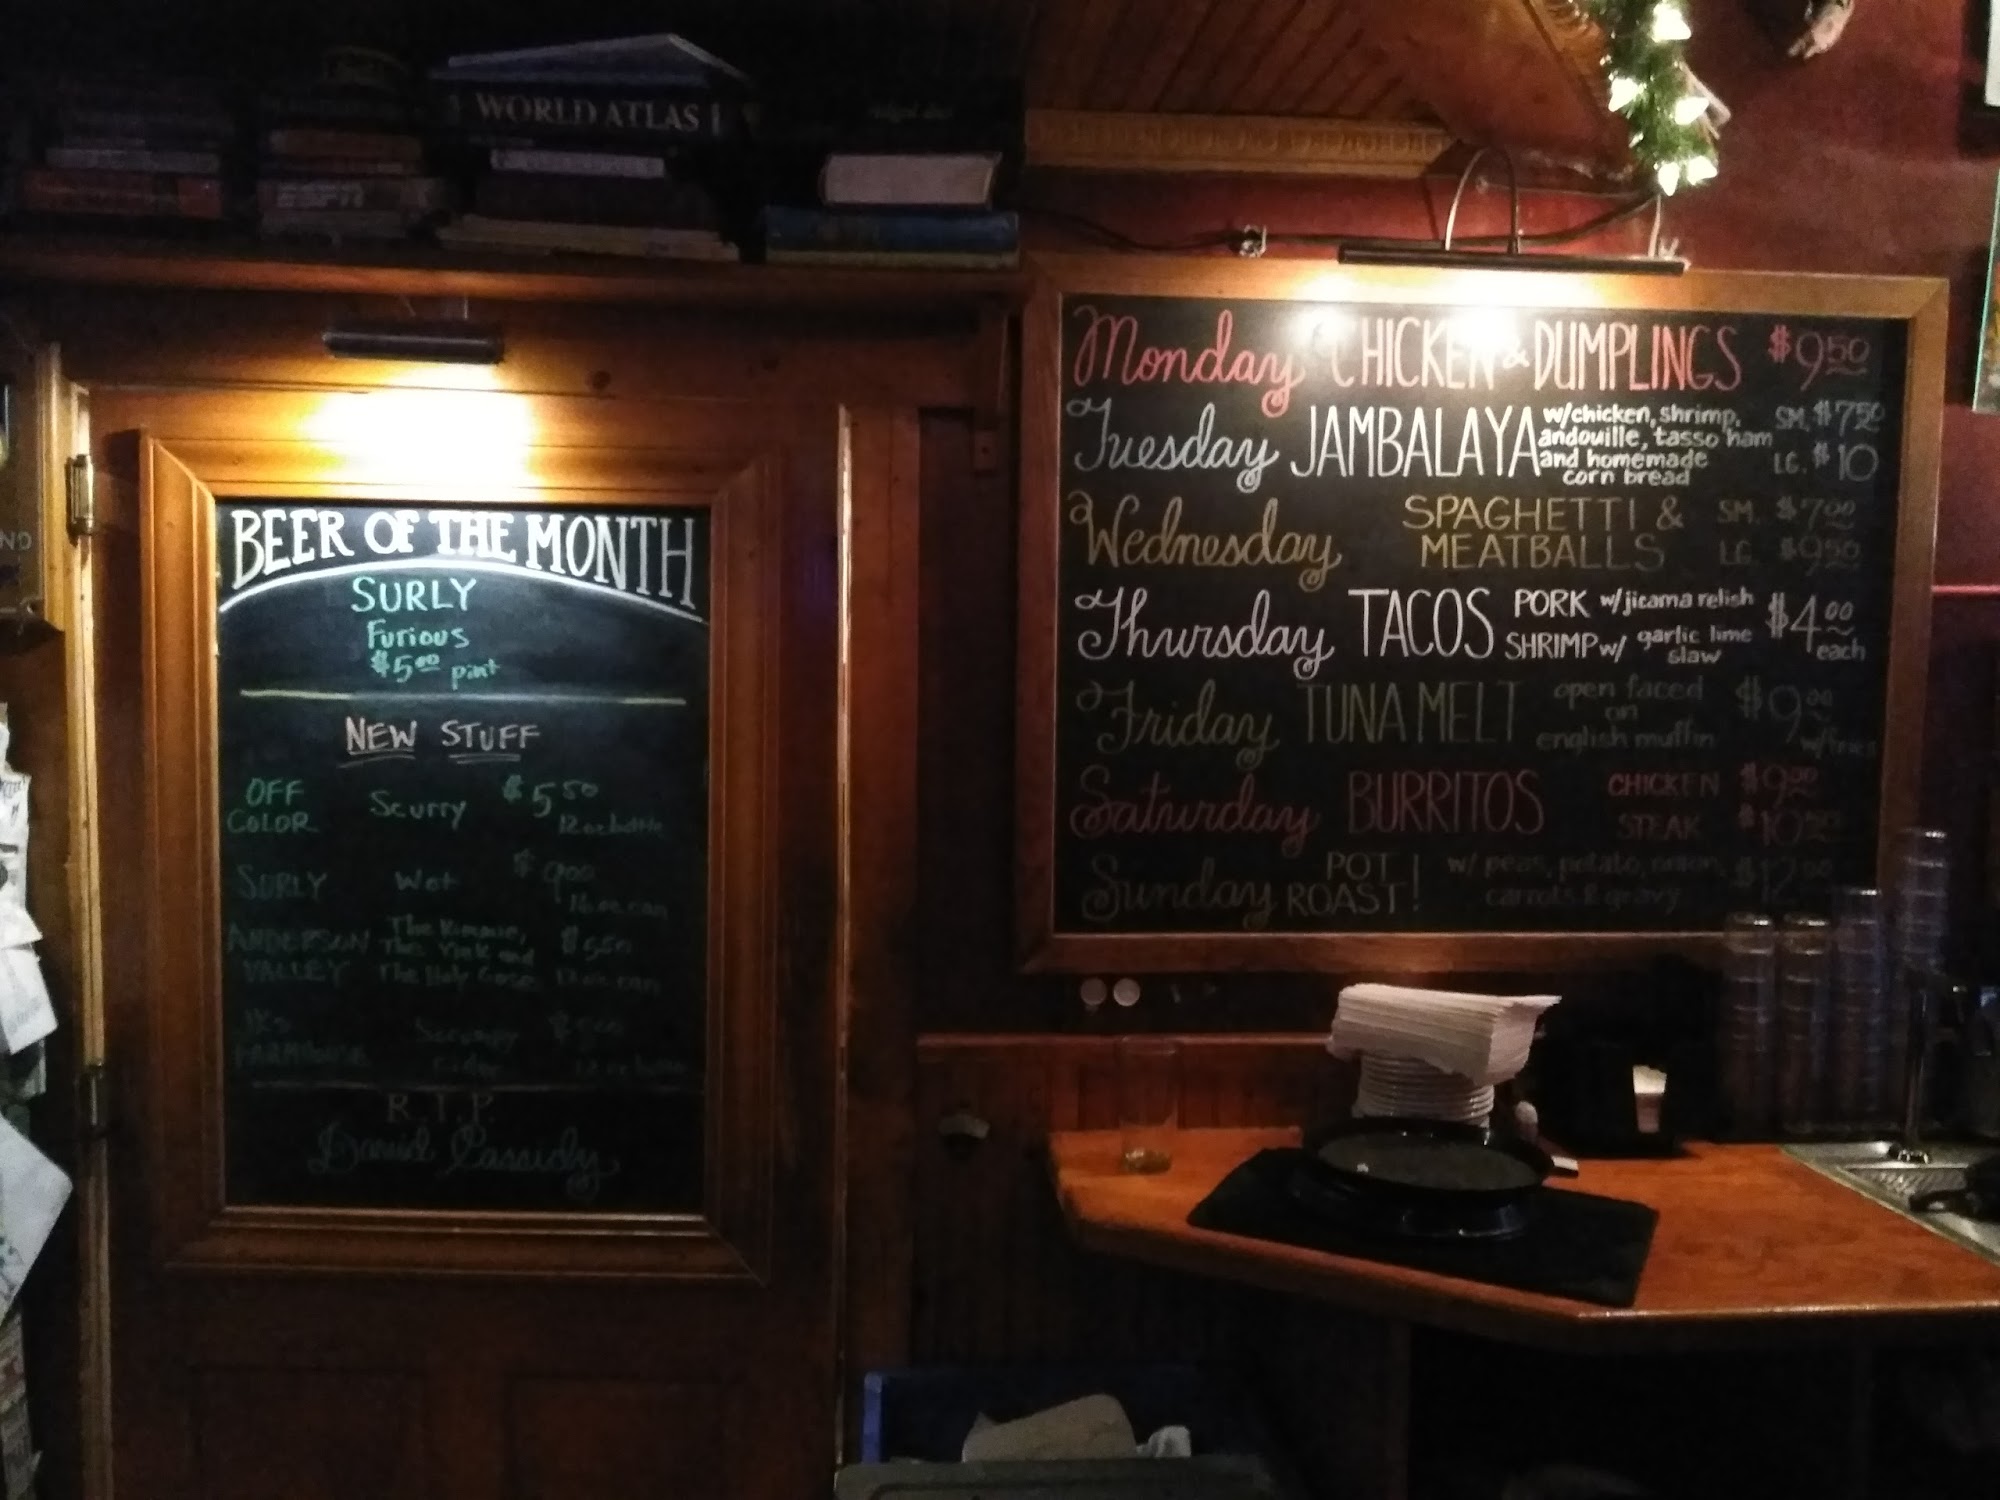 WORLD ATLAS
BEER OF THE MONTH
SURLY
Furious
$5.00 pint
NEW STUFF
OFF COLOR Scurry $5.50
12 oz bottle
SURLY Wet $9.00
16 oz can
ANDERSON The Kimmie, $5.50
VALLEY The Yink and 12 oz can
The Holy Gose
FARMHOUSE
R.I.P.
Daniel Cassidy
Monday CHICKEN & DUMPLINGS $9.50
Tuesday JAMBALAYA w/chicken, shrimp, SM. $7.50
andouille, tasso ham
and homemade LG. $10
corn bread
Wednesday SPAGHETTI & SM. $7.00
MEATBALLS LG. $9.50
Thursday TACOS PORK w/jicama relish $4.00
SHRIMP w/ garlic lime each
slaw
Friday TUNA MELT open faced $9.00
on
english muffin w/fries
Saturday BURRITOS CHICKEN $9.00
STEAK
Sunday POT w/ peas, potato, onion, $12.00
ROAST! carrots & gravy